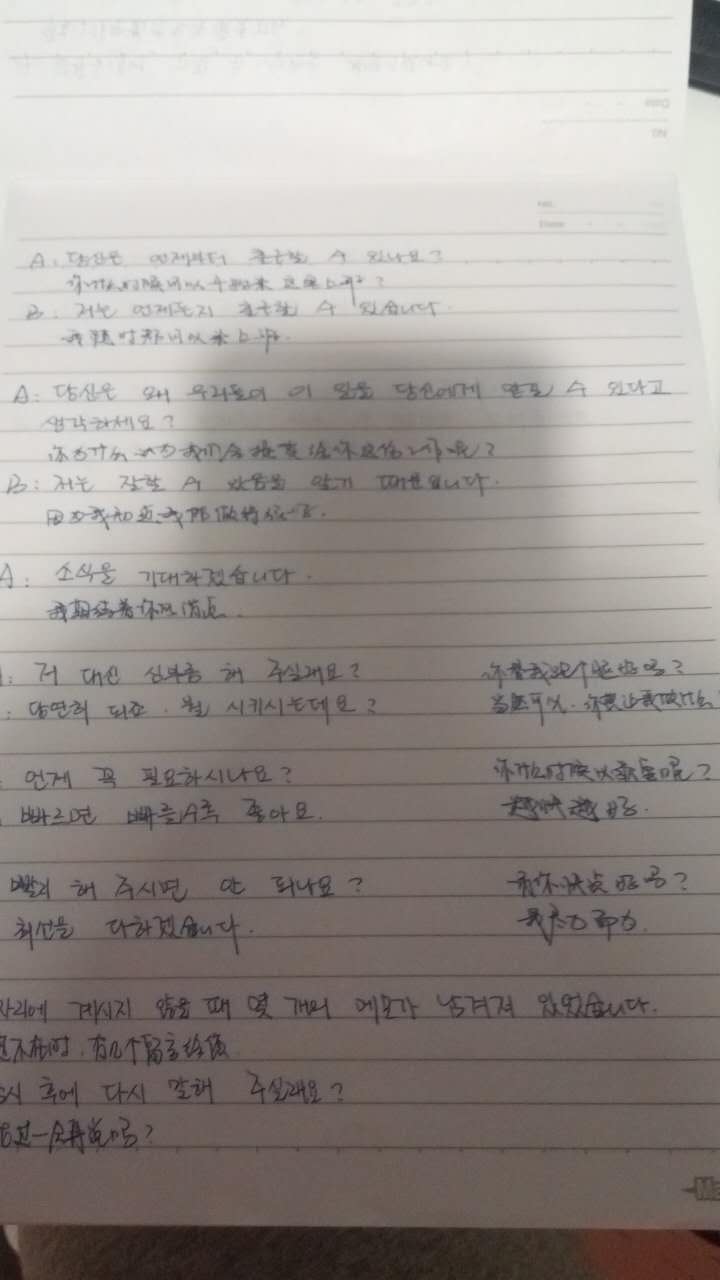 A: 당신은 언제부터 출근할 수 있나요?
你什么时候可以开始来这里上班?
B: 저는 언제든지 출근할 수 있습니다.
我随时都可以来上班.
A: 당신은 왜 우리들이 이 일을 당신에게 맡길 수 있다고
생각하세요?
你为什么认为我们会把这份工作呢?
B: 저는 잘할 수 있음을 알기 때문입니다.
因为我知道我能做得
A: 소식을 기대하겠습니다.
我期待着你的消息.
: 저 대신 심부름 해 주실래요? 你替我跑个腿好吗?
: 당연히 되죠. 뭘 시키시는데요? 当然可以. 你要让我做什么
언제 꼭 필요하시나요? 你什么时候需要呢?
빠르면 빠를수록 좋아요. 越快越好.
빨리 해 주시면 안 되나요? 快点好吗?
최선을 다하겠습니다. 我尽力而为.
자리에 계시지 않을 때 몇 개의 메모가 남겨져 있었습니다.
不在时, 有几个留言给
후에 다시 말해 주실래요?
过一会再说吗?